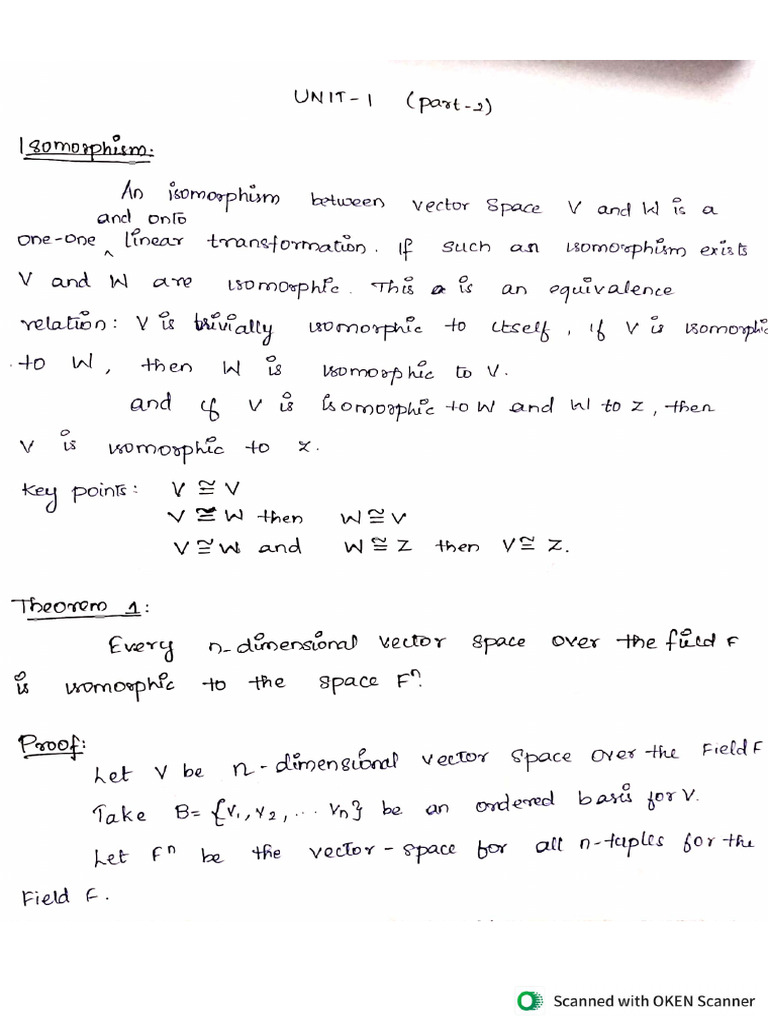 UNIT-1 (part-2)
Isomorphism:
An isomorphism between vector space V and W is a
and onto
one-one ^ linear transformation. If such an isomorphism exists
V and W are isomorphic. This is an equivalence
relation: V is trivially isomorphic to itself, if V is isomorphic
to W, then W is isomorphic to V.
and if V is isomorphic to W and W to Z, then
V is isomorphic to Z.
Key points: V ≅ V
V ≅ W then W ≅ V
V ≅ W and W ≅ Z then V ≅ Z.
Theorem 1:
Every n-dimensional vector space over the field F
is isomorphic to the space Fⁿ.
Proof:
Let V be n-dimensional vector space over the Field F
Take B= {V₁, V₂, ... Vn} be an ordered basis for V.
Let Fⁿ be the vector-space for all n-tuples for the
Field F.
Scanned with OKEN Scanner